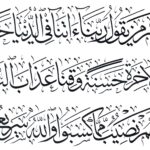 من يقول ربنا ءاتنا في الدنيا
حسنة وقنا عذاب
نصيب مما كسبوا والله سريع